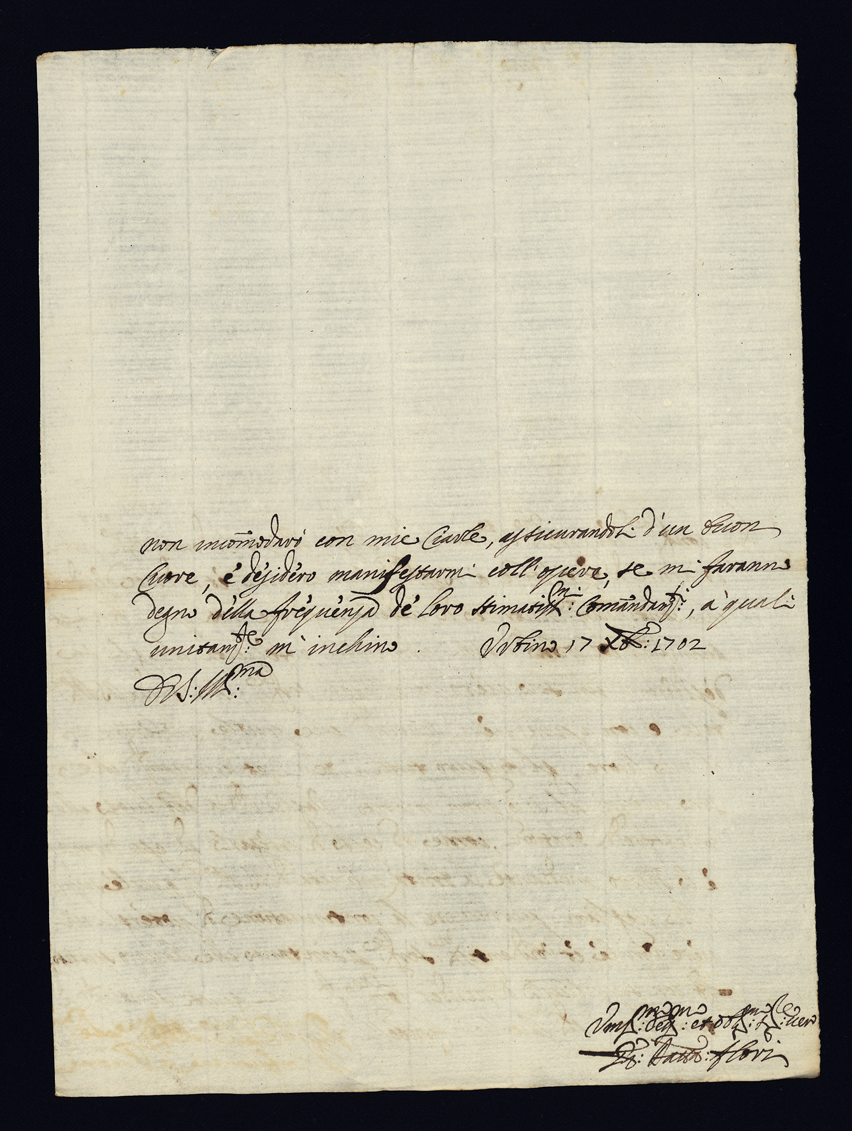 non incom̃odarõ con mie Ciarle, assicurandoli d'un buon
Cuore, è desidero manifestarmi coll'opere, se mi faranno
degno della frequenza de loro stimatiss:ⁿⁱ Comandam:ᵗⁱ, à quali
unitam:ᵗᵉ m'inchino. Urbino 17 Xb:ᵉ 1702
Di V.S: Ill:ᵐᵃ
Umil:ᵐᵒ dev:ᵐᵒ et obl:ᵐᵒ ser:ʳᵉ vero
Batta: Flori